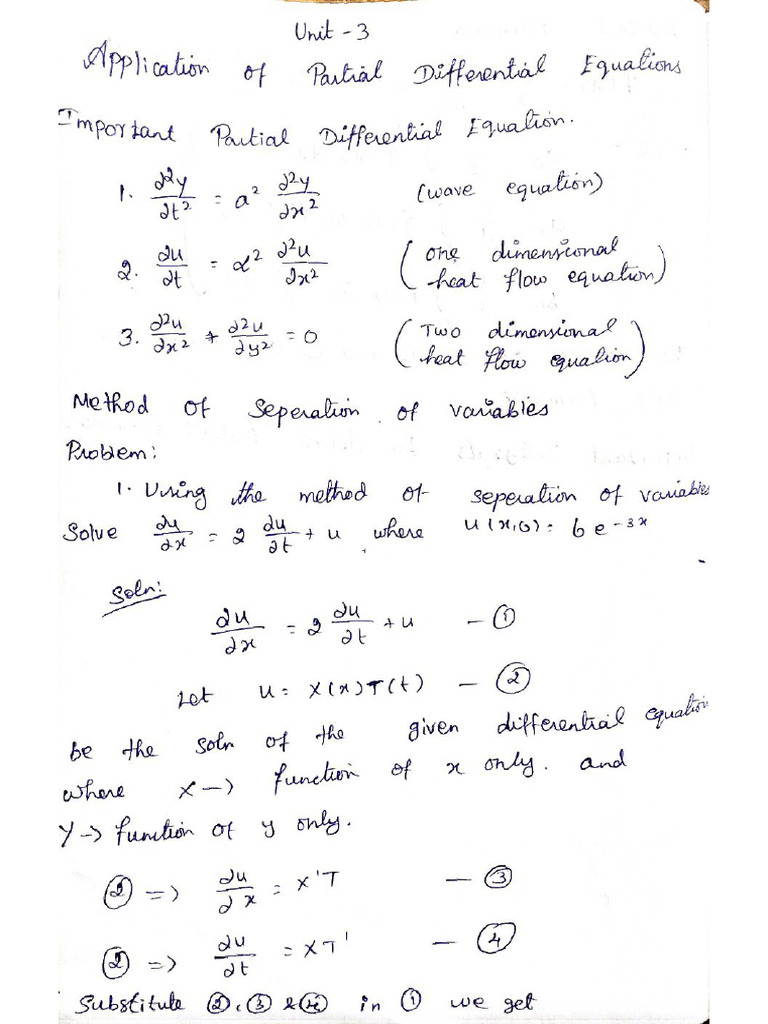 Unit - 3
Application of Partial Differential Equations
Important Partial Differential Equation.
1. ∂²y/∂t² = a² ∂²y/∂x² (wave equation)
2. ∂u/∂t = α² ∂²u/∂x² (one dimensional heat flow equation)
3. ∂²u/∂x² + ∂²u/∂y² = 0 (Two dimensional heat flow equation)
Method of Seperation of variables
Problem:
1. Using the method of seperation of variables
Solve ∂u/∂x = 2 ∂u/∂t + u where u(x,0) = 6e⁻³ˣ
Soln:
∂u/∂x = 2 ∂u/∂t + u — ①
Let u = X(x)T(t) — ②
be the soln of the given differential equation
where X → function of x only. and
Y → function of y only.
② => ∂u/∂x = X'T — ③
② => ∂u/∂t = XT' — ④
Substitute ②, ③ & ④ in ① we get